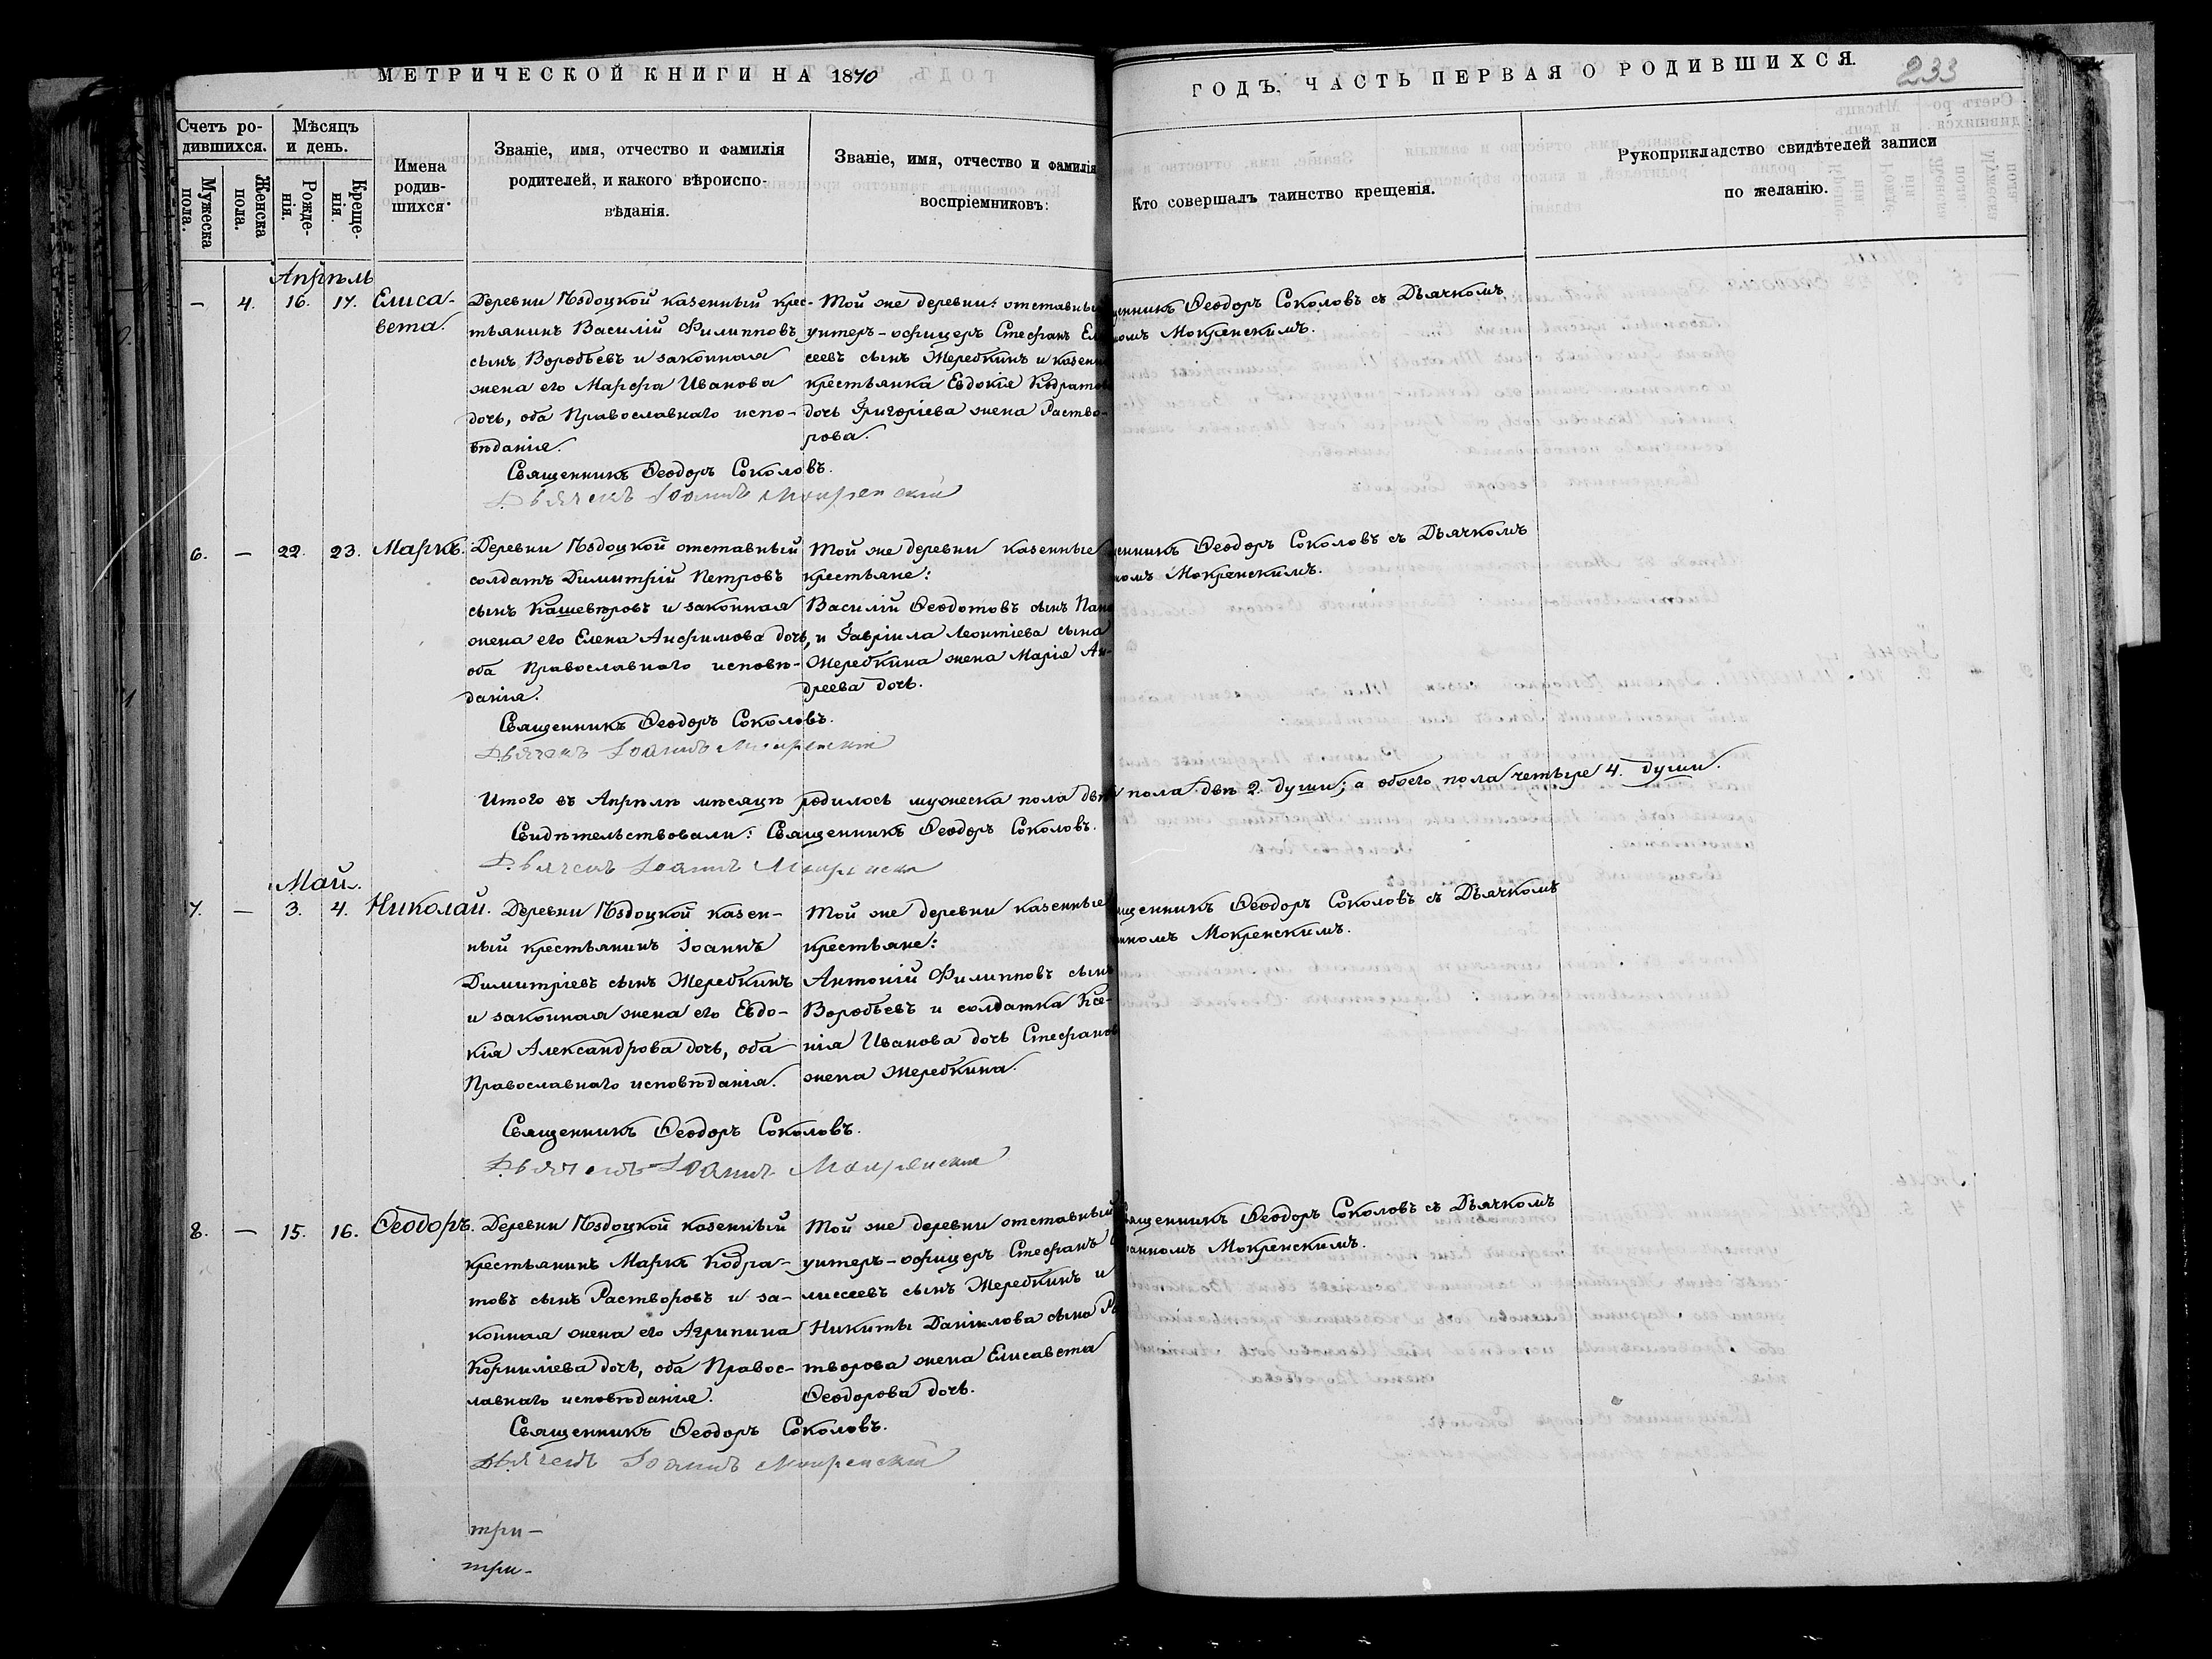 МЕТРИЧЕСКОЙ КНИГИ НА 1870
ГОДЪ, ЧАСТЬ ПЕРВАЯ О РОДИВШИХСЯ.
233
Счетъ ро-
дившихся.
Мужеска
пола.
Женска
пола.
Мѣсяцъ
и день.
Рожде-
нія.
Креще-
нія.
Имена
родив-
шихся.
Званіе, имя, отчество и фамилія
родителей, и какого вѣроиспо-
вѣданія.
Званіе, имя, отчество и фамилія
воспріемниковъ:
Кто совершалъ таинство крещенія.
Рукоприкладство свидѣтелей записи
по желанію.
Апрѣль
— 4. 16. 17. Елиса-
вета.
Деревни Пѣдоцкой казенный крес-
тьянинъ Василій Филипповъ
сынъ Воробьевъ и законная
жена его Марѳа Иванова
дочь, оба Православнаго испо-
вѣданія.
Той же деревни: отставный
унтеръ-офицеръ Стефанъ Ели
сеевъ сынъ Жеребкинъ и казен
крестьянка Евдокія Кодратов
дочь Григоріева жена Раство-
рова.
щенникъ Ѳеодоръ Соколовъ съ Дьячкомъ
номъ Мокренскимъ.
Священникъ Ѳеодоръ Соколовъ.
Дьячекъ Іоаннъ Мокренскій
6. — 22. 23. Маркъ.
Деревни Пѣдоцкой отставный
солдатъ Димитрій Петровъ
сынъ Кашеваровъ и законная
жена его Елена Анфимова дочь,
оба Православнаго исповѣ-
данія.
Той же деревни казенные
крестьяне:
Василій Ѳеодотовъ сынъ Пан
и Гавріила Леонтіева сына
Жеребкина жена Марія Ан-
дреева дочь.
щенникъ Ѳеодоръ Соколовъ съ Дьячкомъ
номъ Мокренскимъ.
Священникъ Ѳеодоръ Соколовъ.
Дьячекъ Іоаннъ Мокренскій
Итого въ Апрѣлѣ мѣсяцѣ родилось мужеска пола двѣ пола двѣ 2. души; а обоего пола четыре 4. души.
Свидѣтельствовали: Священникъ Ѳеодоръ Соколовъ.
Дьячекъ Іоаннъ Мокренскій
Май.
7. — 3. 4. Николай.
Деревни Пѣдоцкой казен-
ный крестьянинъ Іоаннъ
Димитріевъ сынъ Жеребкинъ
и законная жена его Евдо-
кія Александрова дочь, оба
Православнаго исповѣданія.
Той же деревни казенные
крестьяне:
Антоній Филипповъ сынъ
Воробьевъ и солдатка Ксе-
нія Иванова дочь Стефанов
жена Жеребкина.
щенникъ Ѳеодоръ Соколовъ съ Дьячкомъ
нномъ Мокренскимъ.
Священникъ Ѳеодоръ Соколовъ.
Дьячекъ Іоаннъ Мокренскій
8. — 15. 16. Ѳеодоръ.
Деревни Пѣдоцкой казенный
крестьянинъ Маркъ Кодра-
товъ сынъ Растворовъ и за-
конная жена его Агрипина
Корниліева дочь, оба Правос-
лавнаго исповѣданія.
Той же деревни отставный
унтеръ-офицеръ Стефанъ
лисеевъ сынъ Жеребкинъ и
Никиты Даніилова сына Ра
творова жена Елисавета
Ѳеодорова дочь.
ященникъ Ѳеодоръ Соколовъ съ Дьячкомъ
анномъ Мокренскимъ.
Священникъ Ѳеодоръ Соколовъ.
Дьячекъ Іоаннъ Мокренскій
три-
три-